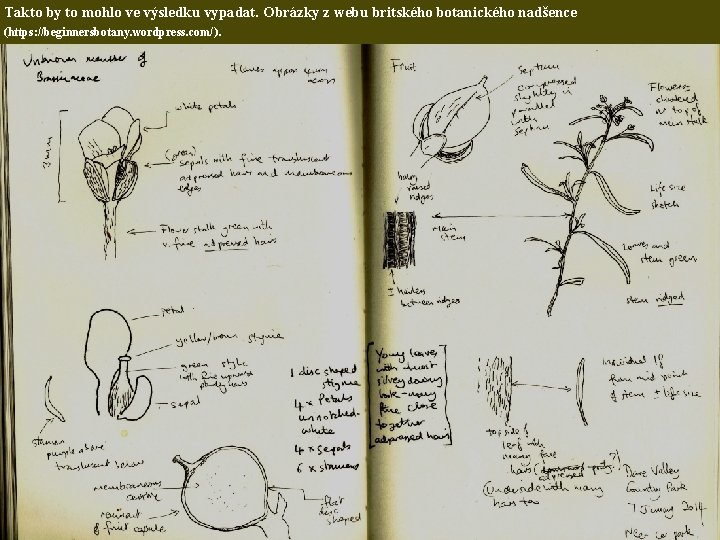 Takto by to mohlo ve výsledku vypadat. Obrázky z webu britského botanického nadšence
(https: //beginnersbotany. wordpress. com/).
Unknown member of
Brassicaceae
Flowers approx 3mm
across
white petals
3mm
(green)
sepals with fine translucent
appressed hairs and membraneous
edges
Flower stalk green with
v. fine adpressed hairs
petal
yellow/brown stigma
green style
with fine upwards
hairs
sepal
stamen
purple above
translucent below
1 disc shaped
stigma
4 x Petals
unnotched-
white
4 x sepals
6 x stamens
membraneous
remnant
of fruit capsule
flat
disc
shaped
Fruit
septum
compressed
slightly in
parallel
with
septum
Flowers
clustered
at top of
main stalk
hairy
raised
ridges
main
stem
± hairless
between ridges
Life size
sketch
Leaves and
stem green
stem ridged
Young leaves
with
silvery downy
look - many
fine close
together
adpressed hairs
Individual lf
from mid point
of stem ± life size
top side of
leaf with
many fine
hairs
adpressed
Underside with many
hairs too
Dare Valley
Country Park
7 January 2014
Near car park